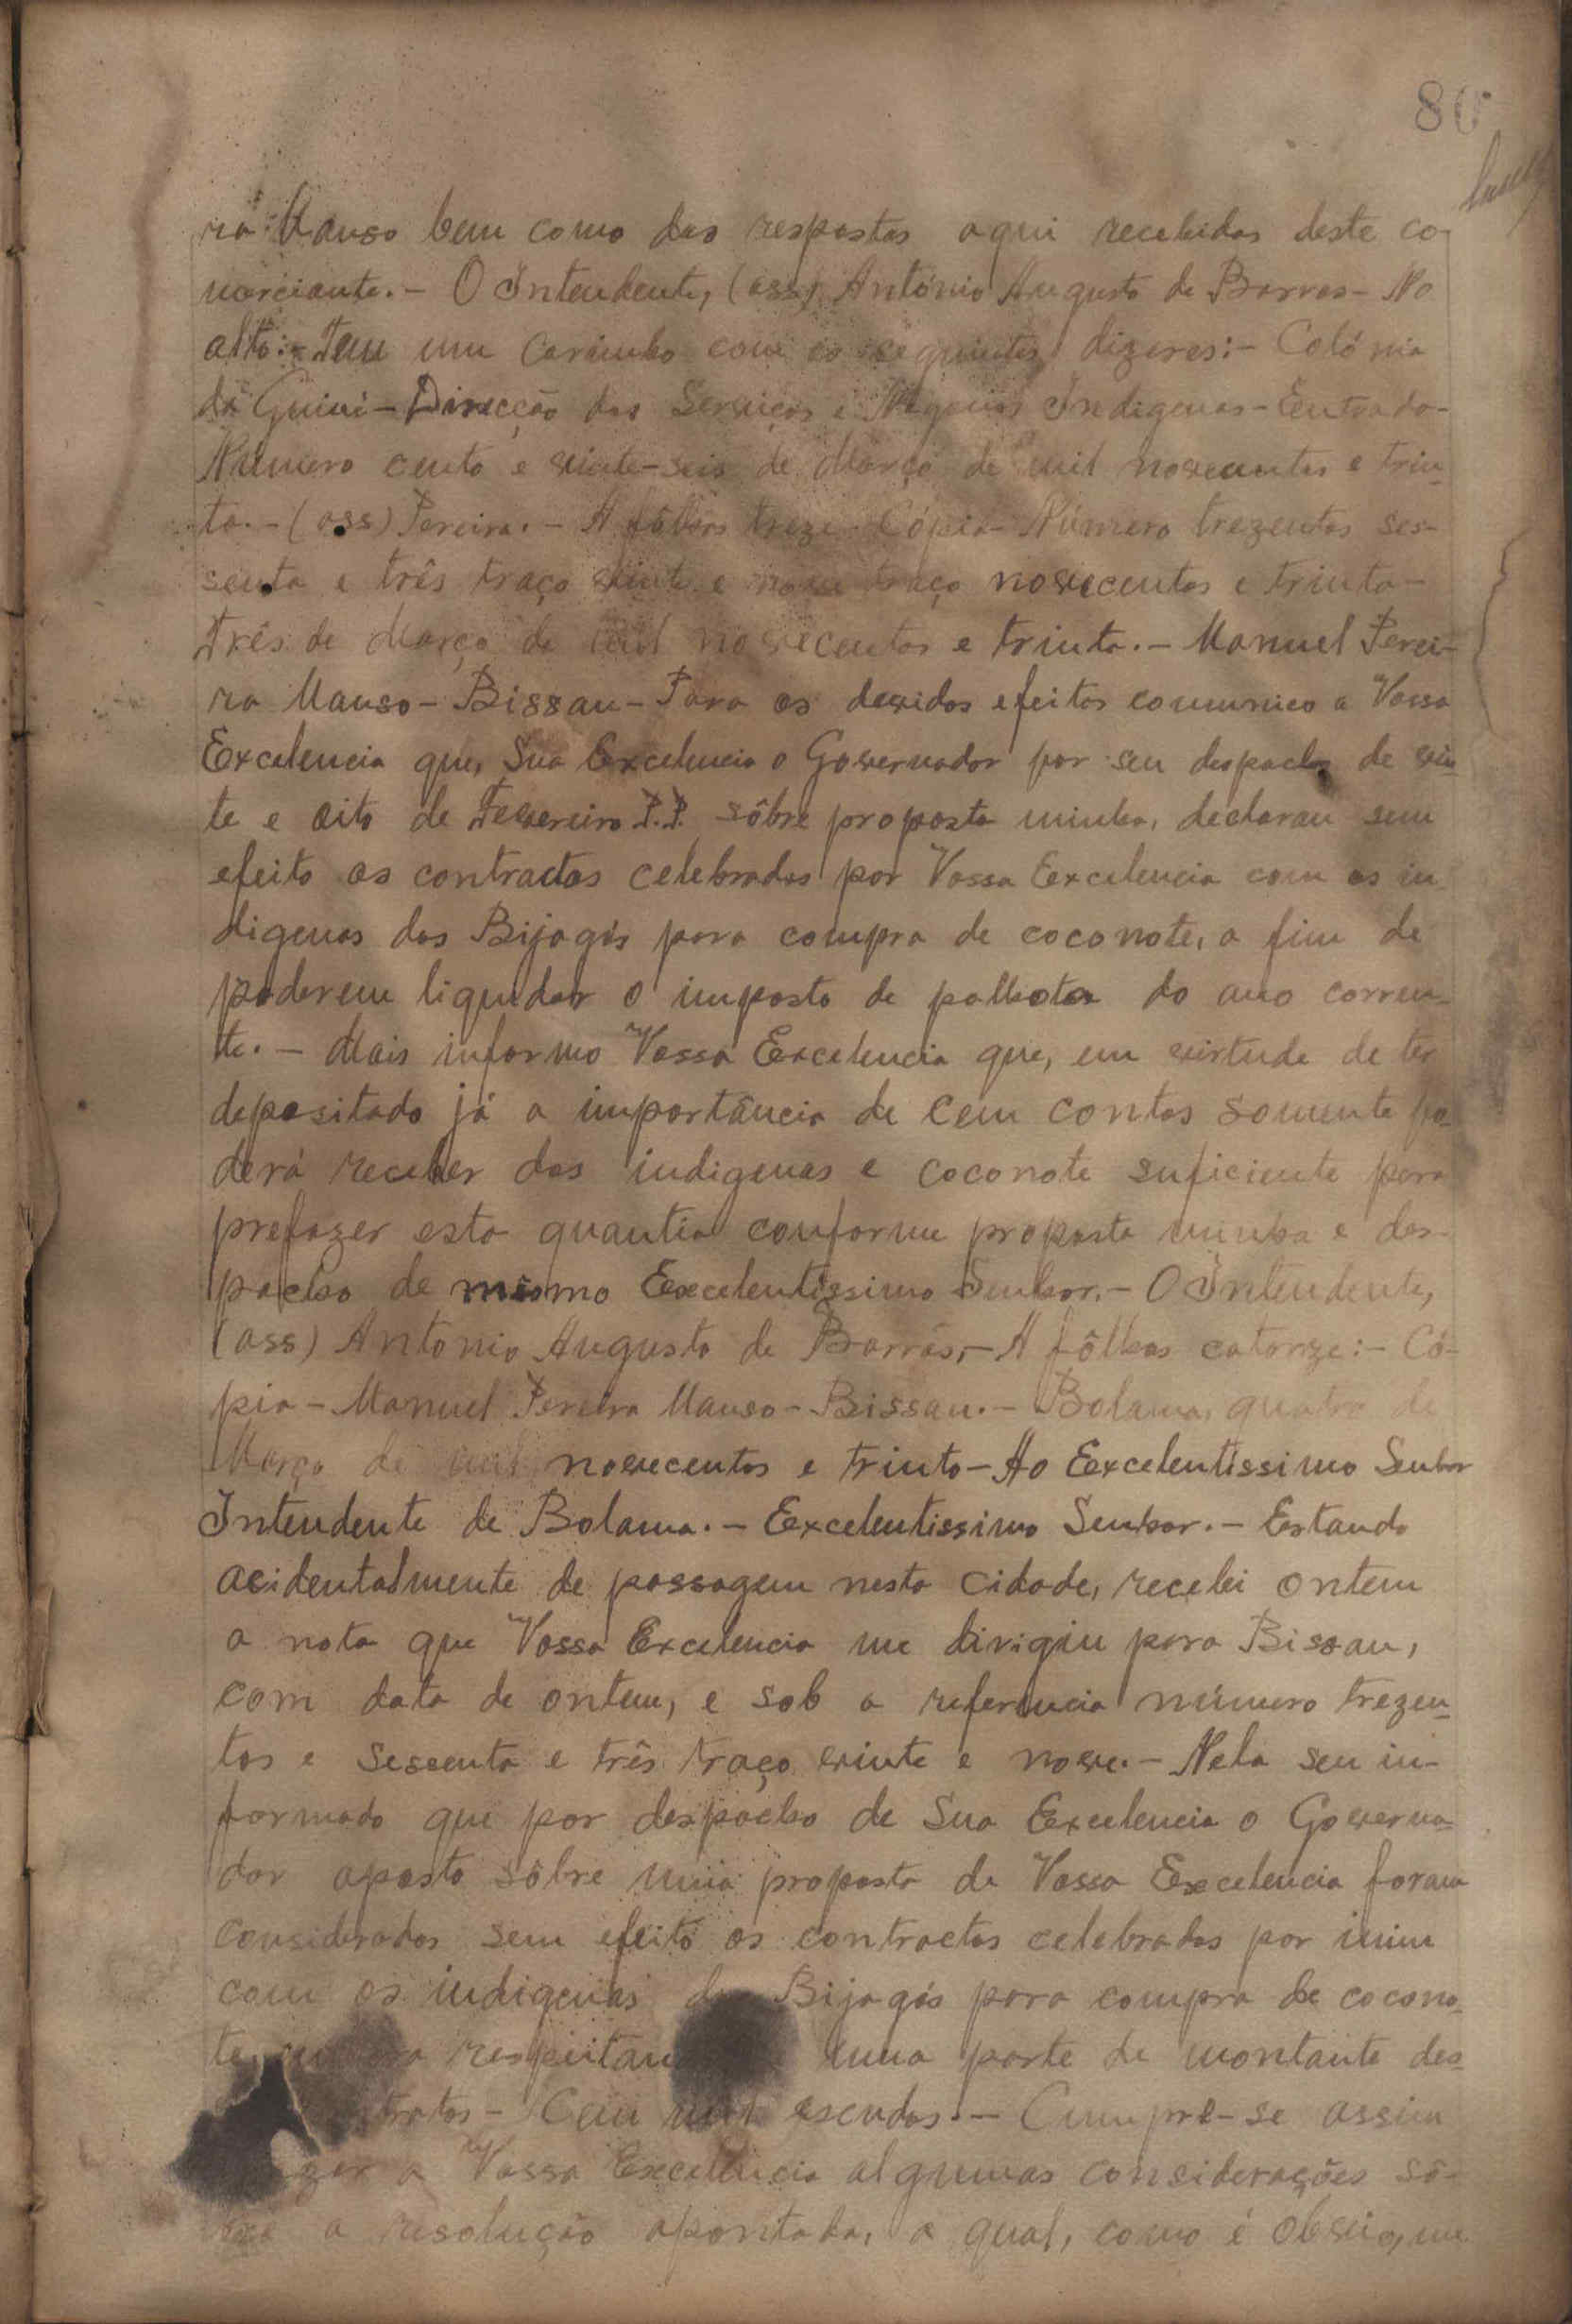 80
ra Manso bem como das respostas aqui recebidas deste co-
merciante.- O Intendente, (ass) António Augusto de Barros- No
alto:- Tem um carimbo com os seguintes dizeres:- Colónia
da Guiné- Direcção dos Serviços e Negocios Indigenas- Entrada-
Número cento e vinte-seis de Março de mil novecentos e trin-
ta.- (ass) Pereira.- A fôlhas treze- Cópia- Número trezentos ses-
senta e três traço vinte e nove traço novecentos e trinta-
Três de Março de mil novecentos e trinta.- Manuel Perei-
ra Manso- Bissau- Para os devidos efeitos comunico a Vossa
Excelencia que, Sua Excelencia o Governador por seu despacho de vin-
te e oito de Fevereiro P.P. sôbre proposta minha, declarou sem
efeito os contractos celebrados por Vossa Excelencia com os in-
digenas dos Bijagós para compra de coconote, a fim de
poderem liquidar o imposto de palhota do ano corren-
te.- Mais informo Vossa Excelencia que, em virtude de ter
depositado já a importância de cem contos somente po-
derá receber dos indigenas e coconote suficiente para
prefazer esta quantia conforme proposta minha e des-
pacho de mesmo Excelentissimo Senhor.- O Intendente,
(ass) António Augusto de Barros,- A fôlhas catorze:- Có-
pia- Manuel Pereira Manso- Bissau.- Bolama, quatro de
Março de mil novecentos e trinta- Ao Excelentissimo Senhor
Intendente de Bolama.- Excelentissimo Senhor.- Estando
acidentalmente de passagem nesta cidade, recebi ontem
a nota que Vossa Excelencia me dirigiu para Bissau,
com data de ontem, e sob a referencia número trezen-
tos e sessenta e três traço vinte e nove.- Nela seu in-
formado que por despacho de Sua Excelencia o Governa-
dor aposto sôbre uma proposta de Vossa Excelencia foram
considerados sem efeito os contractos celebrados por mim
com os indigenas Bijagós para compra de cocono-
te, uma parte de montante des-
tratos- Cem mil escudos.- Cumpre-se assim
a Vossa Excelencia algumas considerações sô-
bre a resolução apontada, a qual, como é obvio, me